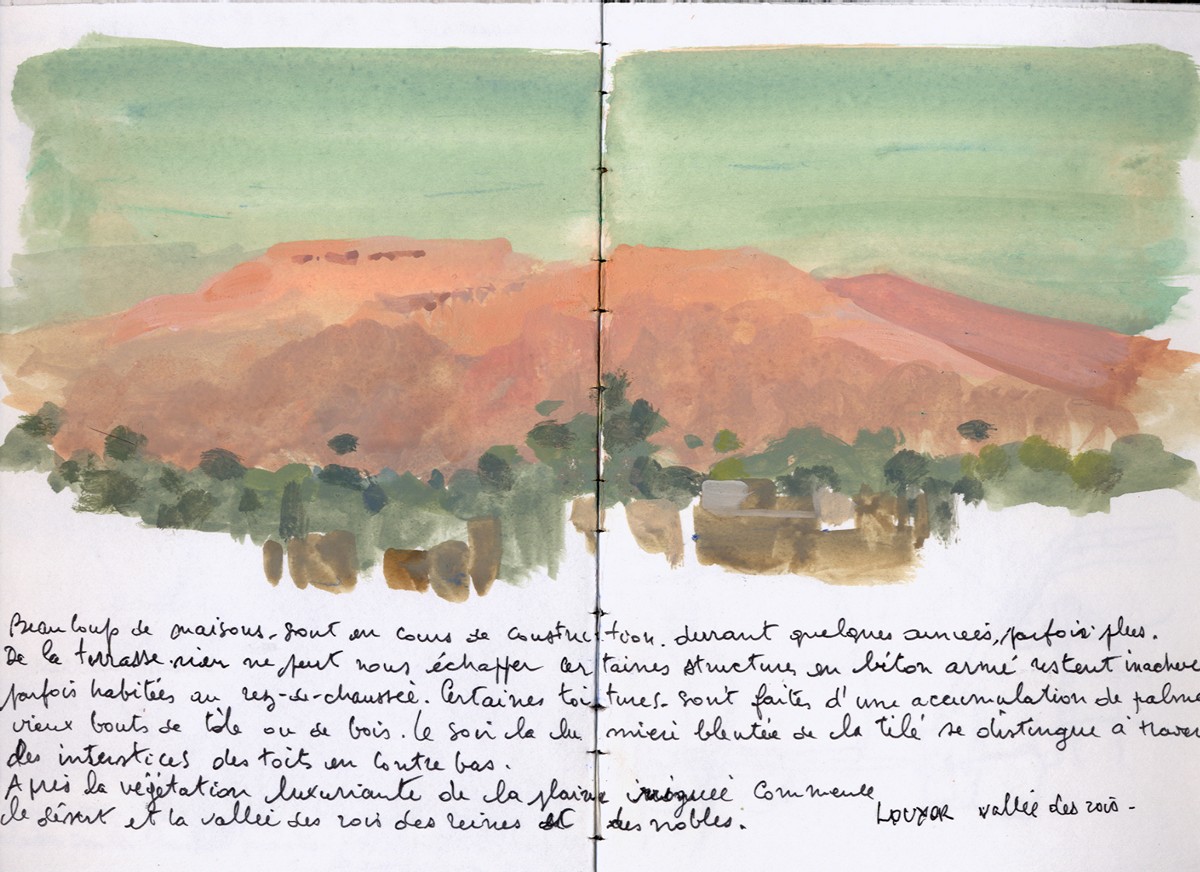 Beaucoup de maisons. sont en cours de construction. durant quelques années, parfois plus.
De la terrasse. rien ne peut nous échapper certaines structures en béton armé restent inachevé
parfois habitées au rez-de-chaussée. Certaines toitures. sont faites d'une accumulation de palme
vieux bouts de tôle ou de bois. le soir la lumière bleutée de la télé se distingue à traver
des interstices des toits en contre bas.
Après la végétation luxuriante de la plaine irriguée commence
le désert et la vallée des rois des reines et des nobles.
Louxor vallée des rois -